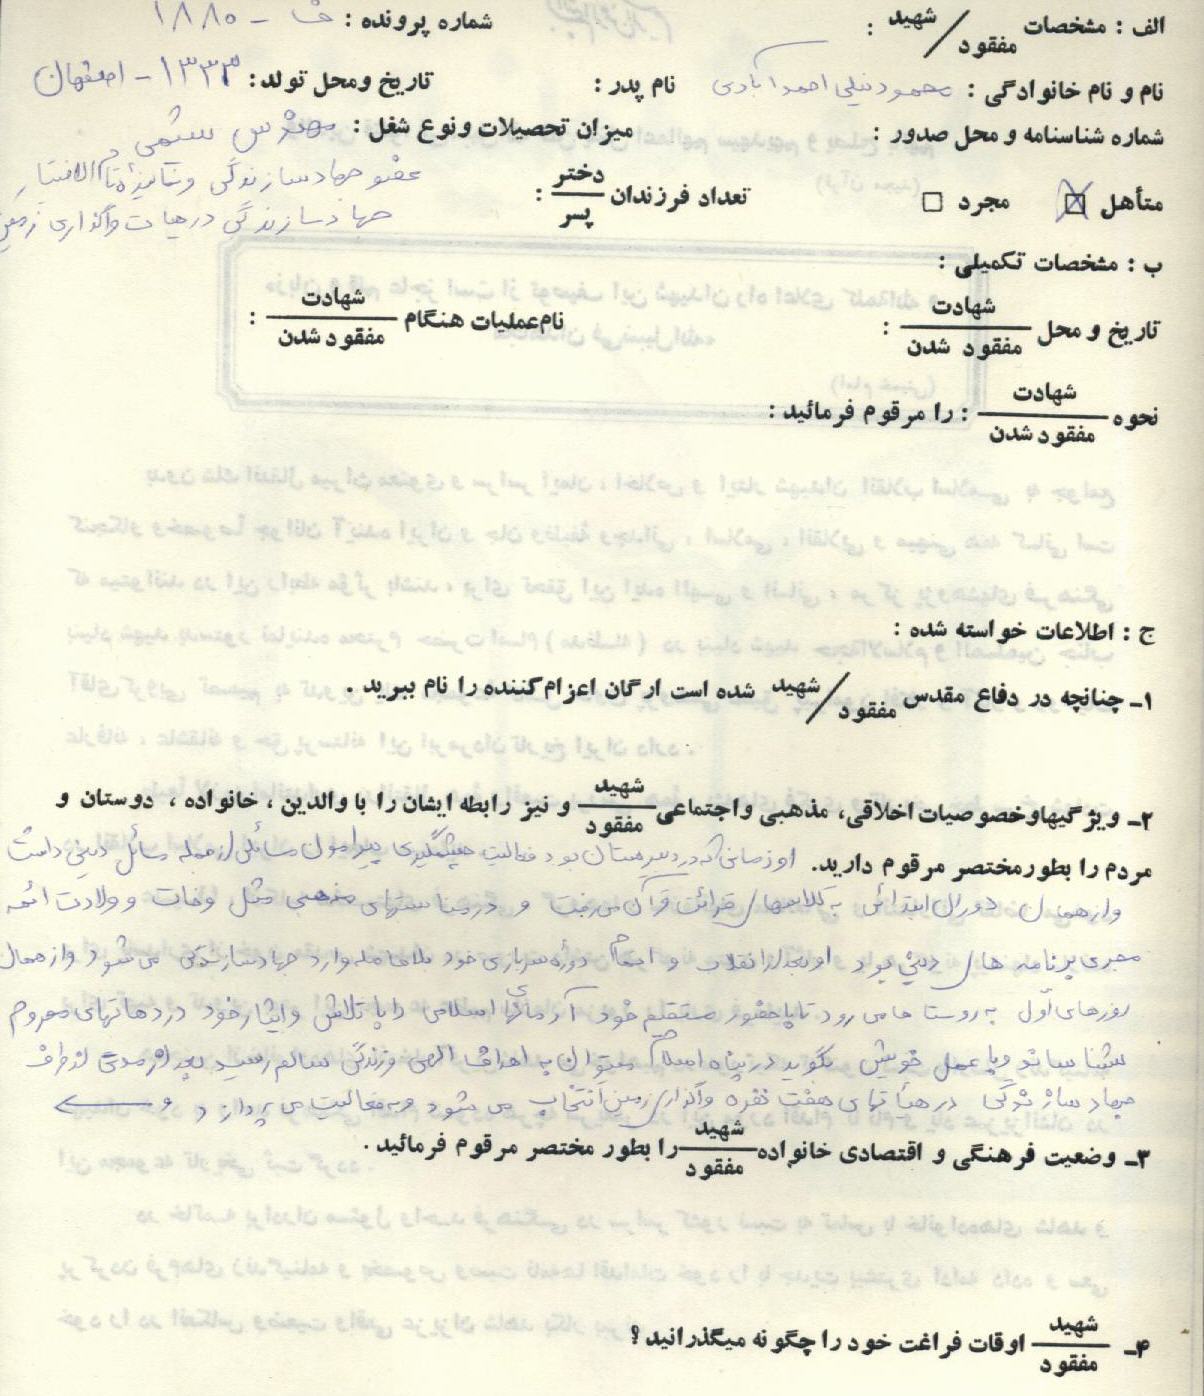 الف : مشخصات شهید / مفقود : شماره پرونده : ف - ۱۸۸۰
نام و نام خانوادگی : محمود نیلی احمدآبادی نام پدر : تاریخ ومحل تولد : ۱۳۳۳ - اصفهان
شماره شناسنامه و محل صدور : میزان تحصیلات ونوع شغل : مهندس شیمی
عضو جهادسازندگی ونماینده تام الاختیار
متأهل مجرد تعداد فرزندان دختر / پسر :
جهادسازندگی در هیات واگذاری زمین
ب : مشخصات تکمیلی :
تاریخ و محل شهادت / مفقود شدن : نام عملیات هنگام شهادت / مفقود شدن :
نحوه شهادت / مفقود شدن : را مرقوم فرمائید :
ج : اطلاعات خواسته شده :
۱- چنانچه در دفاع مقدس شهید / مفقود شده است ارگان اعزام کننده را نام ببرید .
۲- ویژگیهاوخصوصیات اخلاقی، مذهبی واجتماعی شهید / مفقود و نیز رابطه ایشان را با والدین ، خانواده ، دوستان و
مردم را بطورمختصر مرقوم دارید. او زمانی که در دبیرستان بود فعالیت چشمگیری پیرامون مسائل از جمله مسائل دینی داشت
واز همان دوران ابتدائی به کلاسهای قرائت قرآن می رفت و در مناسبتهای مذهبی مثل وفات و ولادت ائمه
مجری برنامه های دینی بود او بعد از انقلاب و اتمام دوره سربازی خود بلافاصله وارد جهادسازندگی می شود واز همان
روزهای اول به روستاها می رود تا با حضور مستقیم خود آرمانهای اسلامی را با تلاش وایثار خود در دهاتهای محروم
بشناساند وبا عمل خویش بگوید در پناه اسلام میتوان به اهداف الهی و زندگی سالم رسید بعد از مدتی از طرف
جهادسازندگی در هیأتهای هفت نفره واگذاری زمین انتخاب می شود وبه فعالیت می پردازد و
۳- وضعیت فرهنگی و اقتصادی خانواده شهید / مفقود را بطور مختصر مرقوم فرمائید .
۴- شهید / مفقود اوقات فراغت خود را چگونه میگذرانید ؟